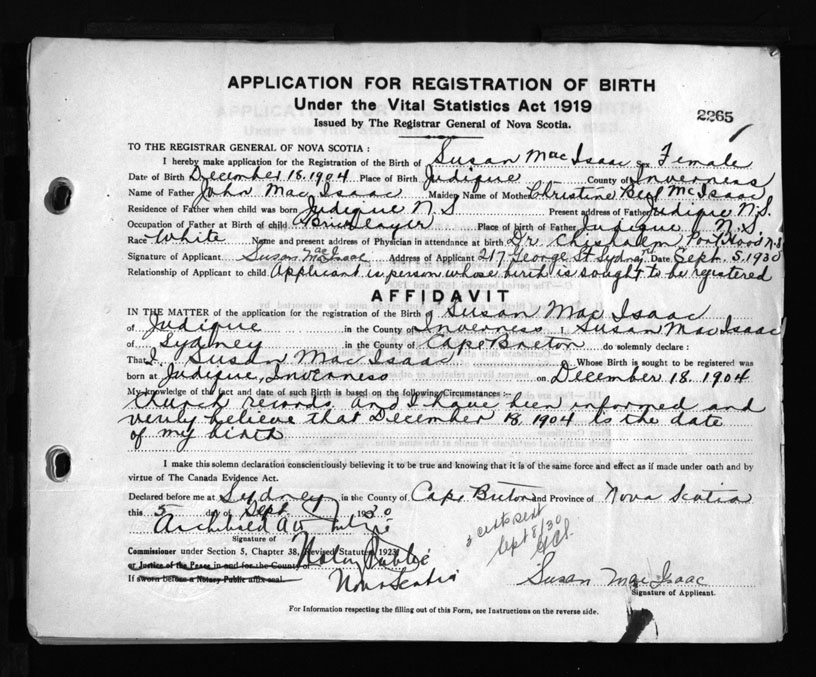 APPLICATION FOR REGISTRATION OF BIRTH
Under the Vital Statistics Act 1919
Issued by The Registrar General of Nova Scotia.
22657
TO THE REGISTRAR GENERAL OF NOVA SCOTIA :
I hereby make application for the Registration of the Birth of Susan Mac Isaac Sex Female
Date of Birth December 18. 1904 Place of Birth Judique County of Inverness
Name of Father John Mac Isaac Maiden Name of Mother Christine Bell McIsaac
Residence of Father when child was born Judique N.S Present address of Father Judique N.S.
Occupation of Father at Birth of child Bricklayer Place of birth of Father Judique N.S
Race White Name and present address of Physician in attendance at birth Dr Chisholm, Port Hood N.S
Signature of Applicant Susan MacIsaac Address of Applicant 217 George St. Sydney Date Sept. 5. 1930
Relationship of Applicant to child Applicant is person whose birth is sought to be registered
AFFIDAVIT
IN THE MATTER of the application for the registration of the Birth of Susan Mac Isaac
of Judique in the County of Inverness I Susan MacIsaac
of Sydney in the County of Cape Breton do solemnly declare :
That I. Susan Mac Isaac Whose Birth is sought to be registered was
born at Judique, Inverness on December 18. 1904
My knowledge of the fact and date of such Birth is based on the following Circumstances :-
Church records and I have been informed and
verily believe that December 18, 1904 is the date
of my birth
I make this solemn declaration conscientiously believing it to be true and knowing that it is of the same force and effect as if made under oath and by
virtue of The Canada Evidence Act.
Declared before me at Sydney in the County of Cape Breton and Province of Nova Scotia
this 5 day of Sept. 1930
Archibald
Signature of
3 certs sent
Sept 8/30
Commissioner under Section 5, Chapter 38, Revised Statutes, 1923,
or Justice of the Peace in and for the County of
Notary Public
If sworn before a Notary Public affix seal.
Nova Scotia
Susan MacIsaac
Signature of Applicant.
For Information respecting the filling out of this Form, see Instructions on the reverse side.